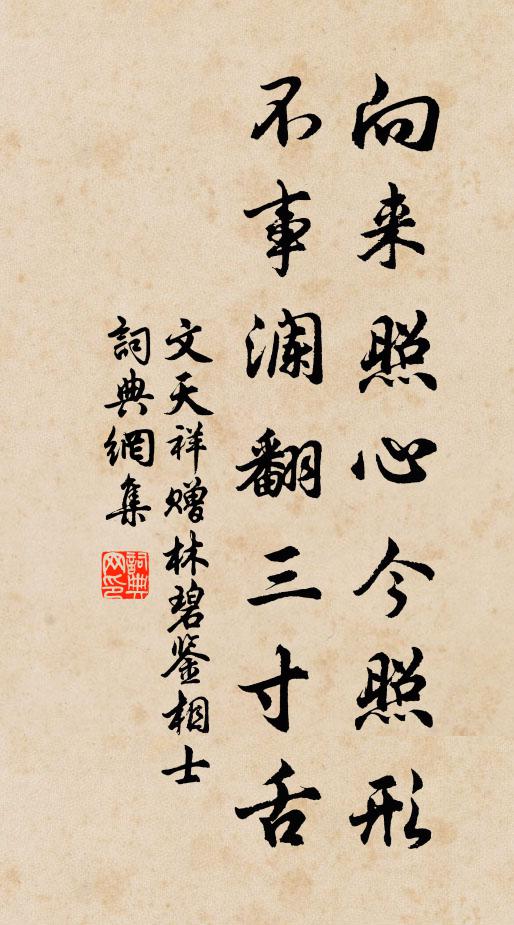 向来照心今照形
不事澜翻三寸舌
文天祥赠林碧鉴相士
詞典網集
詞典網印